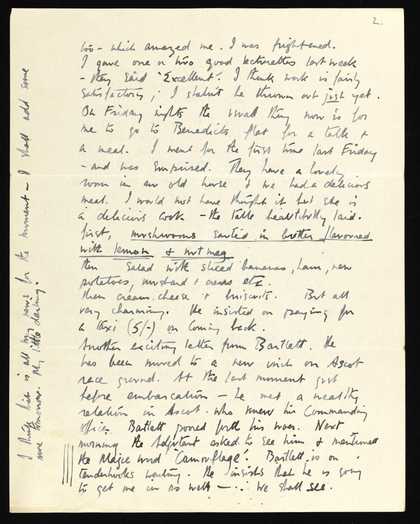 2.
too - which amazed me. I was frightened.
I gave one or two good lecturettes last week
- they said 'Excellent'. I think work is fairly
satisfactory; I shan't be thrown out just yet.
On Friday nights the usual thing now is for
me to go to Benedicts flat for a talk &
a meal. I went for the first time last Friday
- and was surprised. They have a lovely
room in an old house & we had a delicious
meal. I would not have thought it but she is
a delicious cook - the table beautifully laid.
first, mushrooms sauted in butter flavoured
with lemon & nutmeg
then salad with sliced bananas, ham, new
potatoes, mustard & cress etc.
then cream cheese & biscuits. But all
very charming. He insisted on paying for
a taxi (5/-) on coming back.
Another exciting letter from Bartlett. He
has been moved to a new unit on Ascot
race ground. At the last moment just
before embarcation - he met a wealthy
relation in Ascot who knew his Commanding
officer. Bartlett poured forth his woes. Next
morning the Adjutant asked to see him & mentioned
the Magic word 'Camouflage'. Bartlett is on
tenderhooks waiting. He insists that he is going
to get me in as well - ... We shall see.
I think this is all my news for the moment - I shall add some
more tomorrow. My little darling.